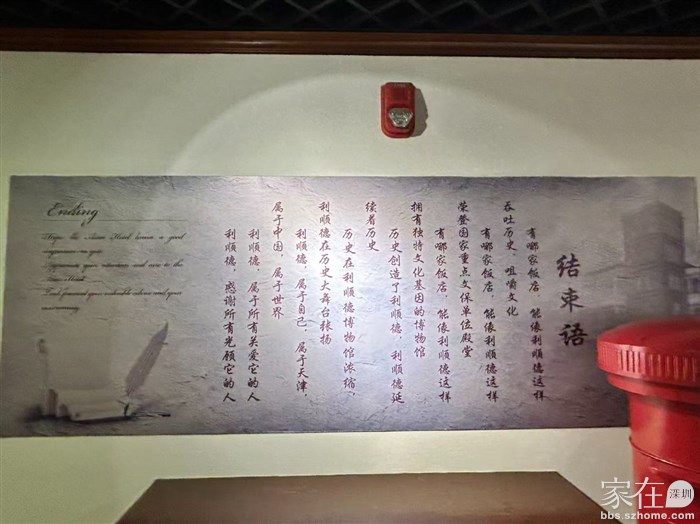 结束语
有哪家饭店，能像利顺德这样
吞吐历史、咀嚼文化
有哪家饭店，能像利顺德这样
荣登国家重点文保单位殿堂
有哪家饭店，能像利顺德这样
拥有独特文化基因的博物馆
历史创造了利顺德，利顺德延
续着历史
历史在利顺德博物馆浓缩，
利顺德在历史大舞台张扬
利顺德，属于自己，属于天津，
属于中国，属于世界
利顺德，属于所有关爱它的人
利顺德，感谢所有光顾它的人
Ending
家在深圳
bbs.szhome.com